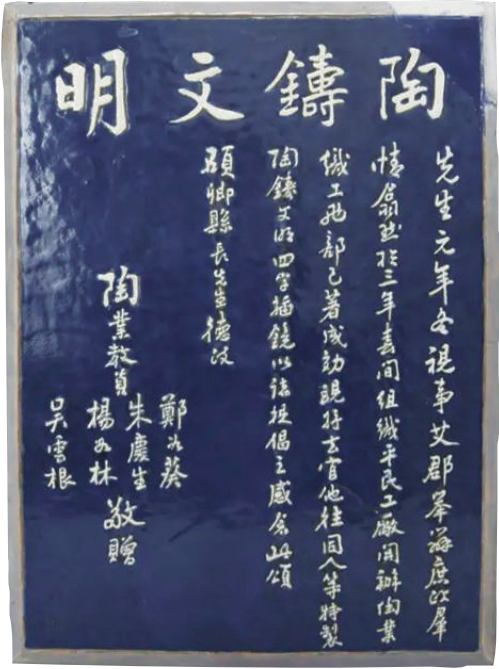 陶鑄文明
先生元年冬視事艾郡舉辦庶政羣
情翕然於三年春間組織平民工廠開辦陶業
織工部已著成効現將去官他往同人等特製
陶鑄文明四字插鏡以誌提倡之盛念此頌
頤卿縣長先生德政
陶業教員
鄭葵
朱慶生
楊林
吳雲根
敬贈